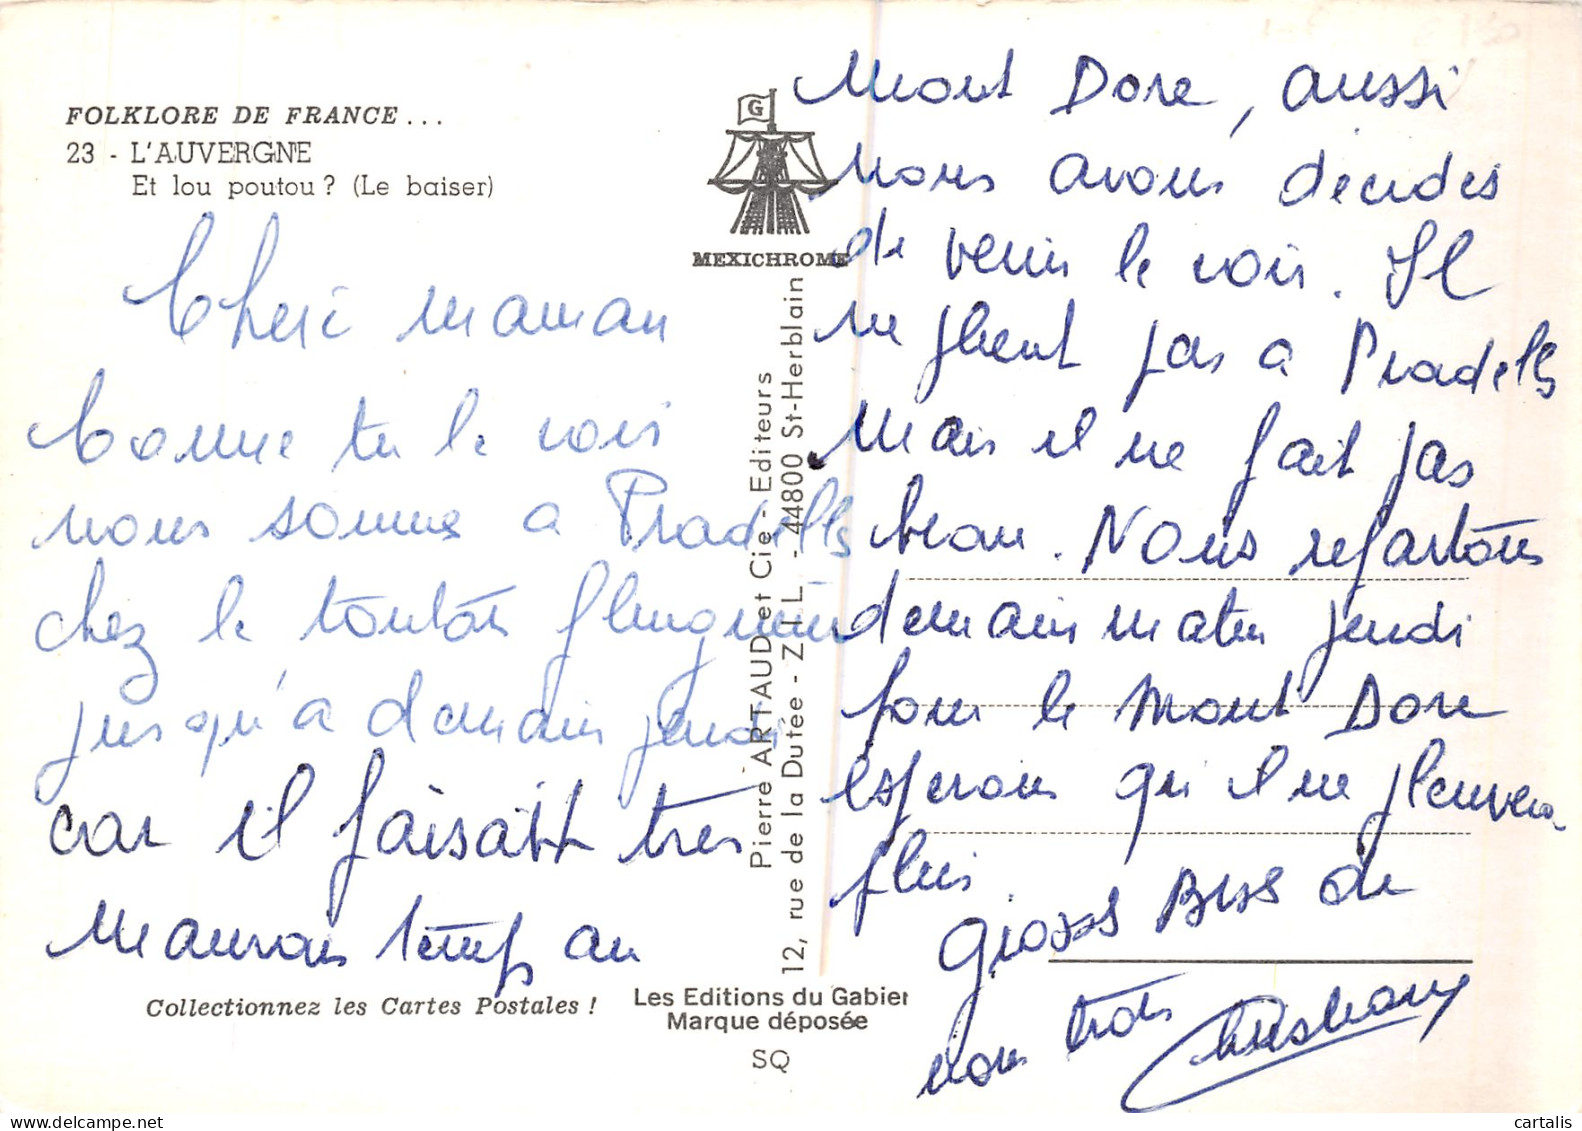 FOLKLORE DE FRANCE...
23 - L'AUVERGNE
Et lou poutou ? (Le baiser)
G
MEXICHROME
Pierre ARTAUD et Cie - Editeurs
12, rue de la Dutée - Z. I. L. - 44800 St-Herblain
Cheri maman
Comme tu le vois
nous somme a Pradells
chez le tonton
jusqu'a demain jeudi
car il faisait très
mauvais temps au
Mont Dore, aussi
nous avons décides
de venir le voir. Il
ne pleut pas a Pradells
Mais il ne fait pas
beau. Nous repartons
demain matin jeudi
pour le Mont Dore
esperons qu il ne pleuvera
plus.
gross Biss de
nous trois
Collectionnez les Cartes Postales !
Les Editions du Gabier
Marque déposée
SQ
cartalis
delcampe.net